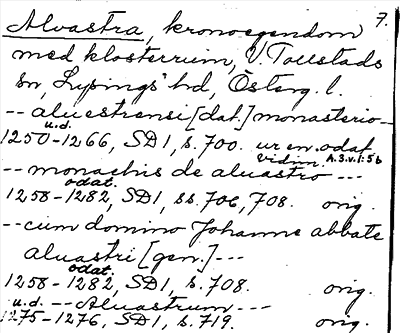 7.
Alvastra, kronoegendom
med klosterruin, V. Tollstads
sn, Lysings hd, Österg. l.
-- aluestrensi [dat.] monasterio --
u.d.
1250-1266, SD1, s. 700. ur en odat.
vidim. A.3.v.l:5b
-- monachis de aluastro ---
odat.
1258-1282, SD1, ss. 706, 708. orig.
-- cum domino Johanne abbate
aluastri [gen.] ---
odat.
1258-1282, SD1, s. 708. orig.
u.d. --- Aluastrum ---
1275-1276, SD1, s. 719. orig.